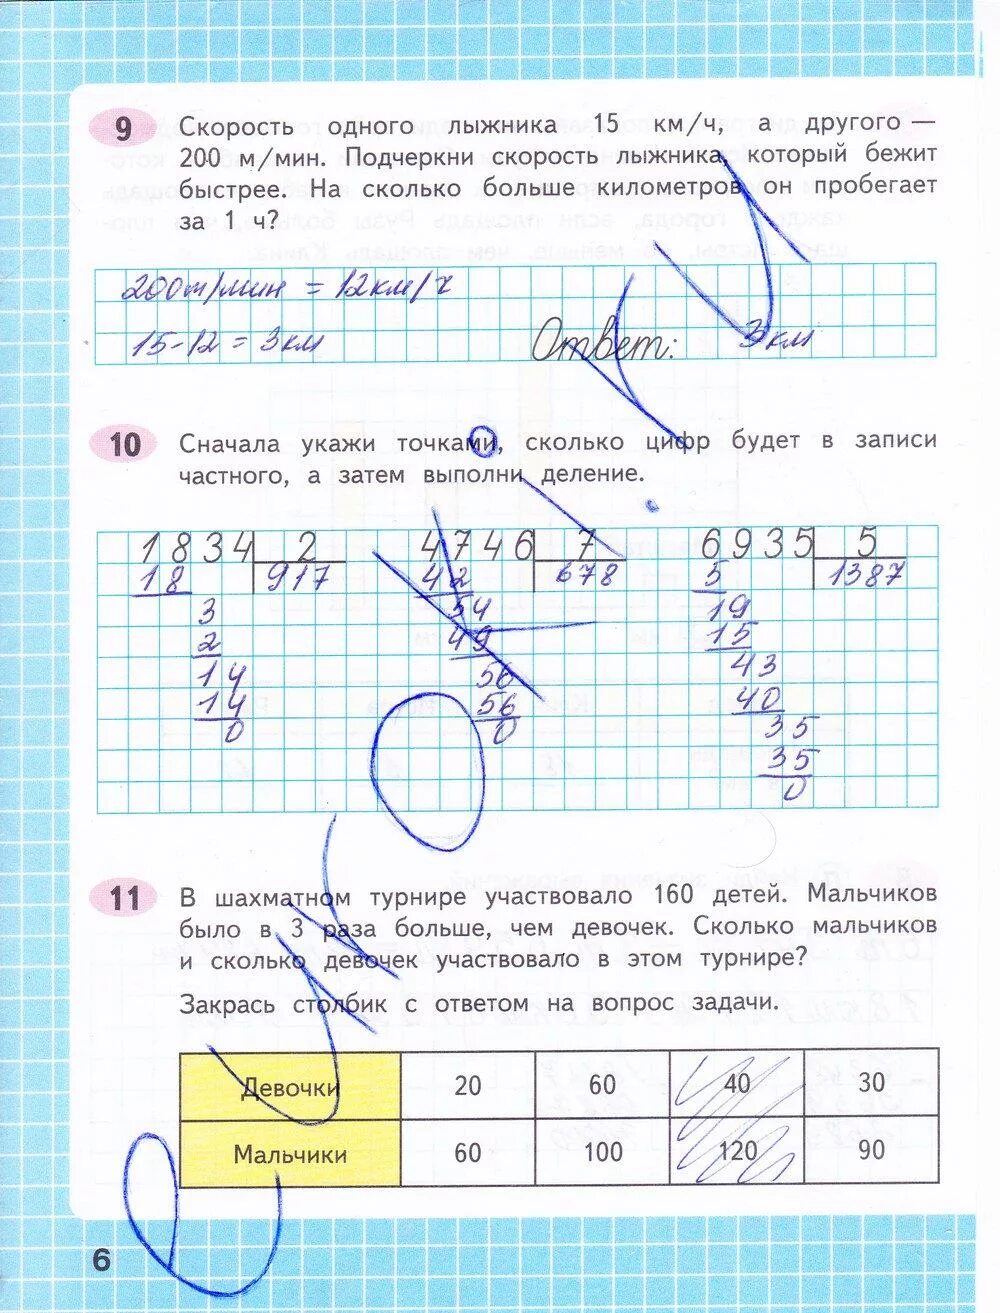 9 Скорость одного лыжника 15 км/ч, а другого —
200 м/мин. Подчеркни скорость лыжника, который бежит
быстрее. На сколько больше километров он пробегает
за 1 ч?
200м/мин = 12км/ч
15-12 = 3км Ответ: 3км
10 Сначала укажи точками, сколько цифр будет в записи
частного, а затем выполни деление.
1834 2 4746 7 6935 5
18 917 42 678 5 1387
3 54 19
2 49 15
14 56 43
14 56 40
0 0 35
35
0
11 В шахматном турнире участвовало 160 детей. Мальчиков
было в 3 раза больше, чем девочек. Сколько мальчиков
и сколько девочек участвовало в этом турнире?
Закрась столбик с ответом на вопрос задачи.
Девочки 20 60 40 30
Мальчики 60 100 120 90
6